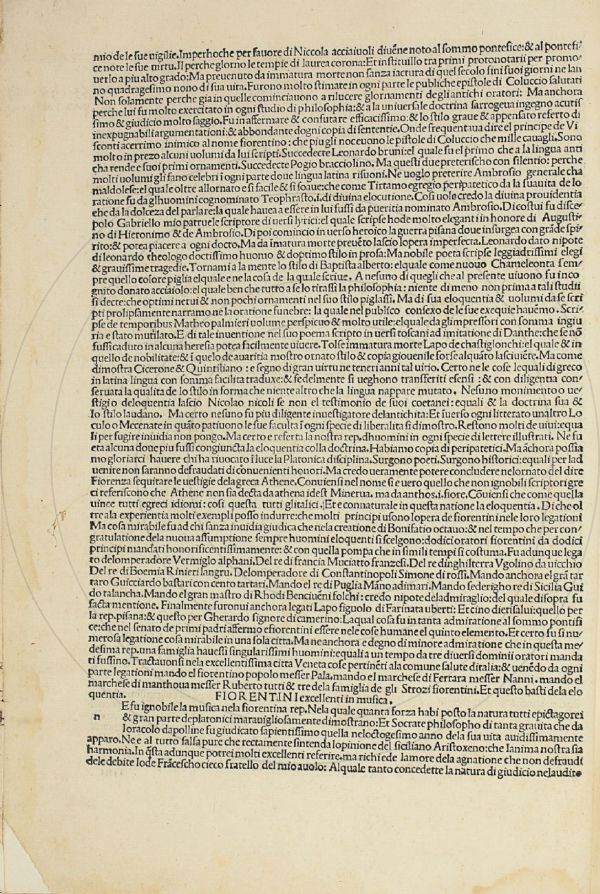 mio de le sue vigilie. Imperhoche per fauore di Niccola acciaiuoli diuēne noto al sommo pontefice: & al pontefi
ce note le sue uirtu. Il perche giorno le tempie di laurea corona: Et instituillo tra primi protonotarii per promo
uerlo a piu alto grado: Ma preuenuto da immatura morte non sanza iactura di quel secolo fini suoi giorni ne lan
no quadragesimo nono di sua uita. Furono molto stimate in ogni parte le publiche epistole di Coluccio salutati
Non solamente perche gia in quelle cominciauono a rilucere glornamenti degli antichi oratori: Ma anchora
perche lui fu molto exercitato in ogni studio di philosophia: & a la uniuersale doctrina sarrogeua ingegno acutis
simo & giudicio molto saggio. Fu in affermare & confutare efficacissimo: & lo stilo graue & appensato referto di
inexpugnabili argumentationi: & abbondante dogni copia di sententie. Onde frequentaua dire el principe de Vi
sconti acerrimo inimico al nome fiorentino: che piu gli noceuono le pistole di Coluccio che mille cauagli. Sono
molto in prezo alcuni uolumi da lui scripti. Succedecte Leonardo bruni: el quale fu el primo che a la lingua anti
cha rende e suoi primi ornamenti. Succedecte Pogio bracciolino. Ma questi due preterischo con silentio: perche
molti uolumi gli fano celebri i ogni parte doue lingua latina risuoni. Ne uoglo preterire Ambrosio generale cha
maldolese: el quale oltre allornato e si facile & si soaue: che come Tirtamo egregio peripatetico da la suauita de lo
ratione fu da glhuomini cognominato Teophrasto. i. di diuina elocutione. Cosi uole credo la diuina prouidentia
che da la dolceza del parlare la quale hauea a essere in lui fussi da pueritia nominato Ambrosio. Di costui fu disce
polo Gabriello mio patruele scriptore di uersi lyrici: el quale scripse hode molto eleganti in honore di Augusti
no di Hieronimo & de Ambrosio. Di poi comincio in uerso heroico la guerra pisana doue insurgea con grāde spi
rito: & potea piacere a ogni docto. Ma da imatura morte preuēto lascio lopera imperfecta. Leonardo dato nipote
di leonardo theologo doctissimo huomo & doptimo stilo in prosa: Ma nobile poeta scripse leggiadrissimi elegi
& grauissime tragedie. Tornami a la mente lo stilo di Baptista alberto: el quale come nuouo Chameleonta sem
pre quello colore piglia el quale e ne la cosa de la quale scriue. A nessuno di quegli che al presente uiuono fu inco
gnito donato acciaiolo: el quale ben che tutto a se lo tirassi la philosophia: niente di meno non prima a tali studii
si decte: che optimi nerui & non pochi ornamenti nel suo stilo piglassi. Ma di sua eloquentia & uolumi da se scri
pti prolipsamente narramo ne la oratione funebre: la quale nel publico consexo de le sue exequie hauēmo. Scri
pse de temporibus Matheo palmieri uolume perspicuo & molto utile: el quale da glimpressori con somma ingiu
ria e stato mutilato. E di tale inuentione nel suo poema scripto in uersi toscani ad imitatione di Danthe: che se nō
fussi caduto in alcuna heresia potea facilmente uiuere. Tolse immatura morte Lapo de chastiglonchi: el quale & in
quello de nobilitate: & i quelo de auaritia mostro ornato stilo & copia giouenile forse alquāto lasciuēte. Ma come
dimostra Cicerone & Quintiliano: e segno di gran uirtu ne teneri anni tal uitio. Certo ne le cose le quali di greco
in latina lingua con somma facilita traduxe: & fedelmente si ueghono transferiti e sensi: & con diligentia con
seruata la qualita de lo stilo in forma che niente altro che la lingua nappare mutato. Nesuno monimento o ue
stigio di eloquentia lascio Nicolo nicoli se non el testimonio de suoi coetanei: equali & la doctrina sua &
lo stilo laudano. Ma certo nessuno fu piu diligente inuestigatore delantichita: Et iuerso ogni litterato unaltro Lo
culo o Mecenate in quāto patiuono le sue faculta i ogni specie di liberalita si dimostro. Restono molti de uiui: equa
li per fugire inuidia non pongo. Ma certo e referta la nostra rep. dhuomini in ogni specie di lettere illustrati. Ne fu
eta alcuna doue piu fussi congiuncta la eloquentia colla doctrina. Habiamo copia di peripatetici. Ma āchora possia
mo gloriarci hauere chi ha riuocato i luce la Platonica disciplina. Surgono poeti. Surgono historici: equali per lad
uenire non saranno defraudati di conuenienti honori. Ma credo ueramente potere concludere ne lornato del dire
Fiorenza sequitare le uestigie dela greca Athene. Conuiensi nel nome si e uero quello che non ignobili scriptori gre
ci referiscono che Athene non sia decta da athena idest Minerua. ma da anthos. i. fiore. Cōuiensi che come quella
uince tutti egreci idiomi: cosi questa tutti glitalici. Et e connaturale in questa natione la eloquentia. Di che ol
tre a la experientia molti exempli posso indurre: che molti principi usono lopera de fiorentini nele loro legationi
Ma cosa mirabile fu ad chi sanza inuidia giudica che nela creatione di Bonifatio octauo: & nel tempo che per con
gratulatione dela nuoua assumptione sempre huomini eloquenti si scelgono: dodici oratori fiorentini da dodici
principi mandati honorificentissimamente: & con quella pompa che in simili tempi si costuma. Fu adunque lega
to delomperadore Vermiglo alphani. Del re di francia Muciatto franzesi. Del re dinghilterra Vgolino da uicchio
Del re di Boemia Rinieri langru. Delomperadore di Constantinopoli Simone di rossi. Mando anchora el grā tar
taro Guicciardo bastari con cento tartari. Mando el re di Puglia Māno adimari. Mando federigho re di Sicilia Gui
do talancha. Mando el gran mastro di Rhodi Benciuēni folchi: credo nipote deladmiraglio: del quale disopra fu
facta mentione. Finalmente furonui anchora legati Lapo figluolo di Farinata uberti: Et cino dietisalui: quello per
la rep. pisana: & questo per Gherardo signore di camerino: La qual cosa fu in tanta admiratione al sommo pontifi
ce: che nel senato de primi padri affermo e fiorentini essere nele cose humane el quinto elemento. Et certo fu si nu
merosa legatione cosa mirabile in una sola citta. Ma ne anchora e degno di minore admiratione che in questa me
desima rep. una famiglia hauessi singularissimi huomini: equali a un tempo da tre diuersi dominii oratori manda
ti fussino. Tractauonsi nela excellentissima citta Veneta cose pertinēti ala comune salute ditalia: & uenēdo da ogni
parte legationi mando el fiorentino popolo messer Pala. mando el marchese di Ferrara messer Nanni. mando el
marchese di manthoua messer Ruberto tutti & tre dela famiglia de gli Strozi fiorentini. Et questo basti dela elo
quentia.
FIORENTINI excellenti in musica.
E fu ignobile la musica nela fiorentina rep. Nela quale quanto forza habi posto la natura tutti epictagorei
n & gran parte de platonici marauigliosamente dimostrano: Et Socrate philosopho di tanta grauita che da
loracolo dapolline fu giudicato sapientissimo quella nelo ctogesimo anno dela sua uita auidissimamente
apparo. Ne e al tutto falsa pure che rectamente sintenda lopinione del siciliano Aristoxeno: che lanima nostra sia
harmonia. In q̄sta adunque potrei molti excellenti referire. ma richiede lamore dela agnatione che non defraudi
dele debite lode Frācescho cieco fratello del mio auolo: Al quale tanto concedette la natura di giudicio nel audito